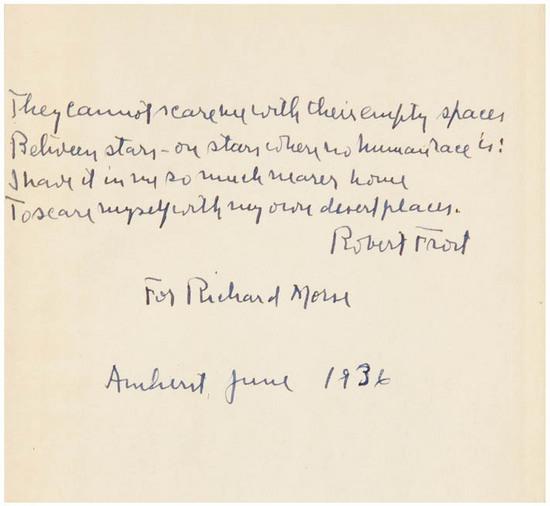 They cannot scare me with their empty spaces
Between stars – on stars where no human race is:
I have it in me so much nearer home
To scare myself with my own desert places.
Robert Frost
For Richard Morse
Amherst, June 1936